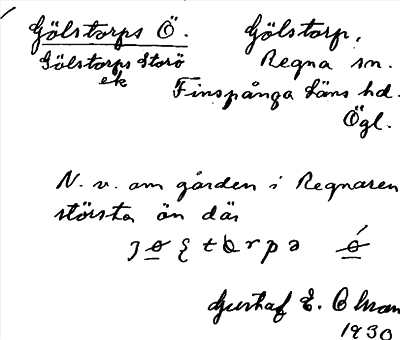 Gölstorps Ö. Gölstorp,
Gölstorps Storö Regna sn.
ek Finspånga läns hd.
Ögl.
N. v. om gården i Regnaren
största ön där
Gustaf E. Olsson
1930